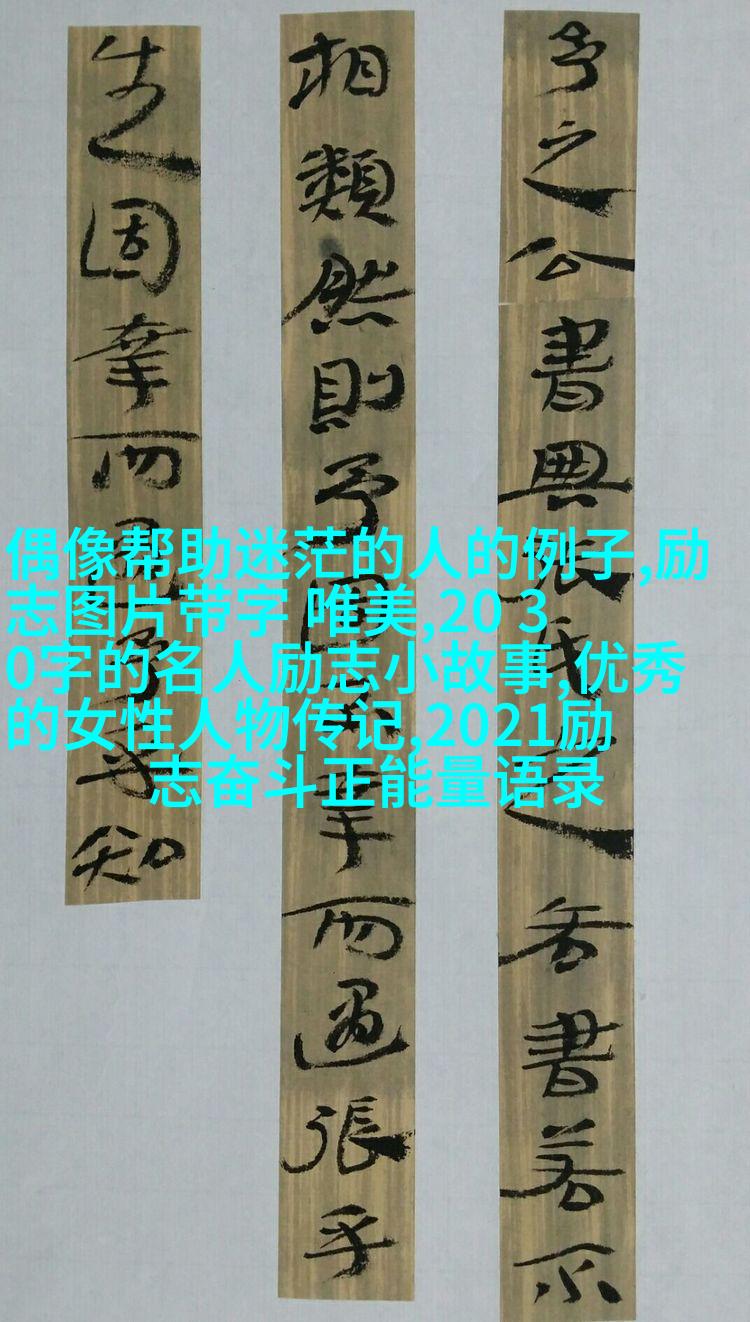 予之公書與張氏之吝書若不
相類然則予固幸而遇張乎
生固幸而遇予乎知
偶像帮助迷茫的人的例子,励
志图片带字 唯美,20 3
0字的名人励志小故事,优秀
的女性人物传记,2021励
志奋斗正能量语录